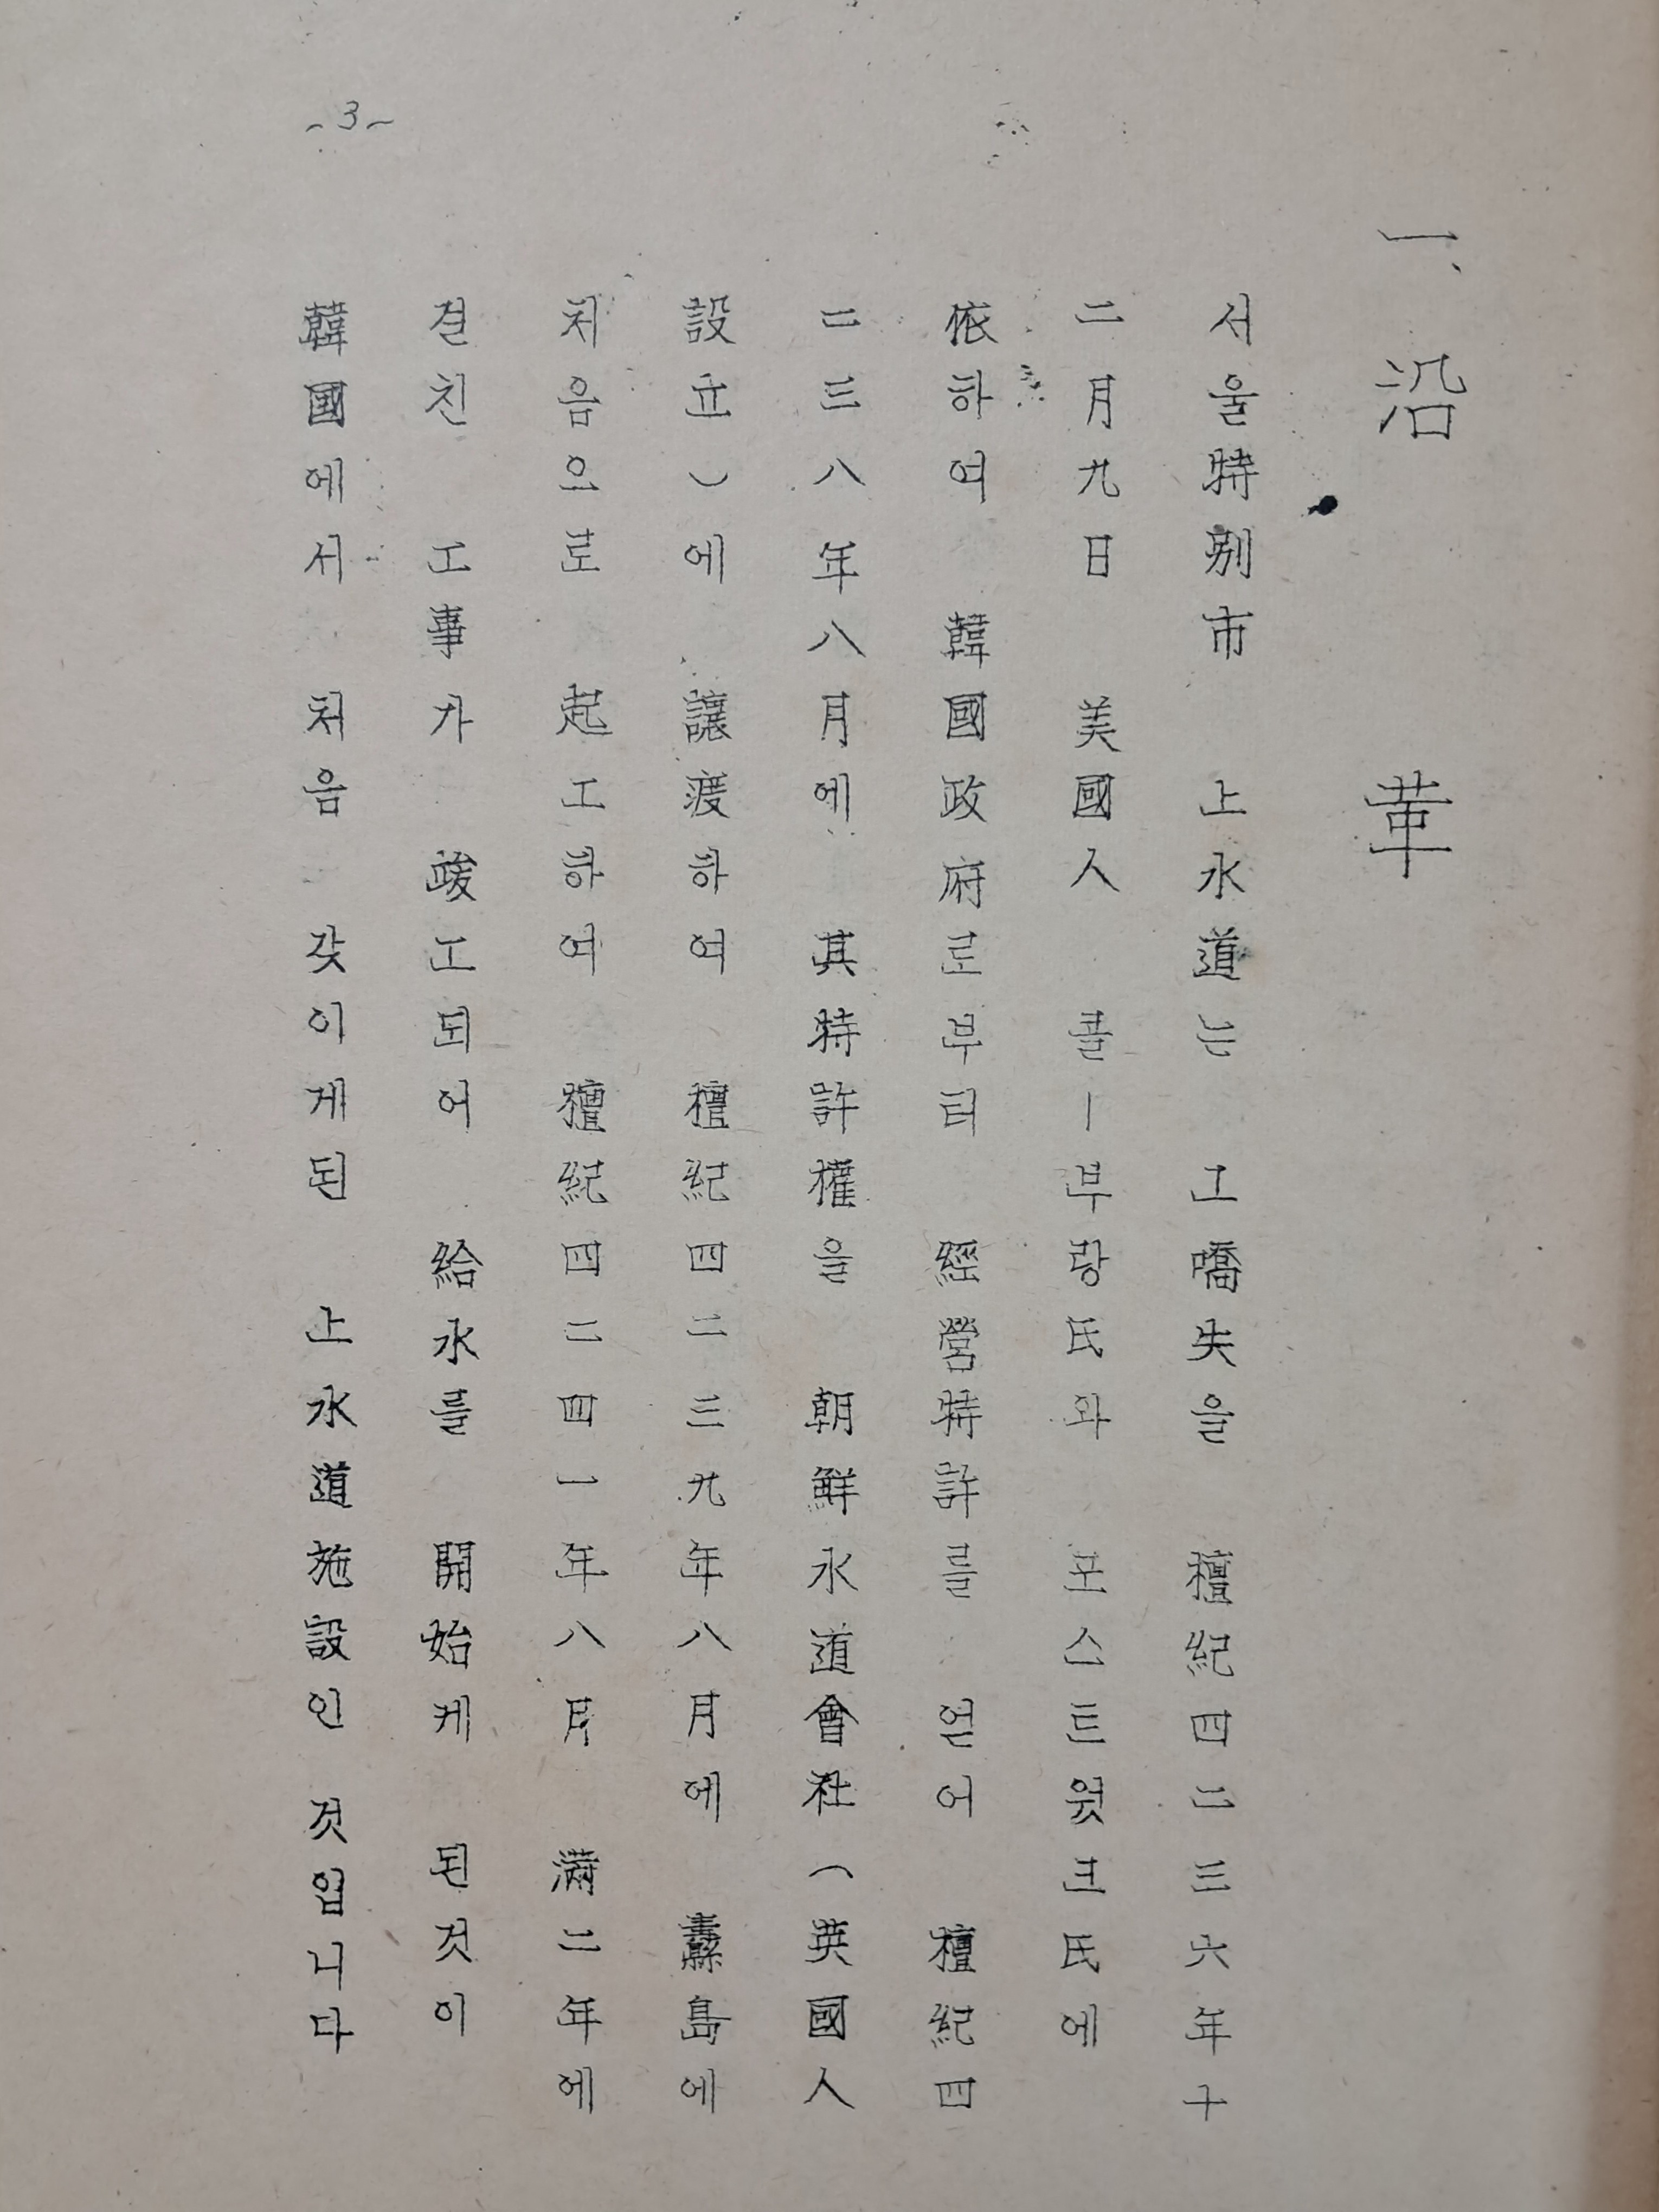 一、沿革
서울特別市 上水道는 그嚆矢을 檀紀四二三六年十
二月九日 美國人 콜ー부랑氏와 포스트웟크氏에
依하여 韓國政府로부터 經營特許를 얻어 檀紀四
二三八年八月에 其特許權을 朝鮮水道會社(英國人
設立)에 讓渡하여 檀紀四二三九年八月에 纛島에
처음으로 起工하여 檀紀四二四一年八月 満二年에
결친 工事가 竣工되어 給水를 開始케 된것이
韓國에서 처음 갖이게된 上水道施設인 것입니다
~3~